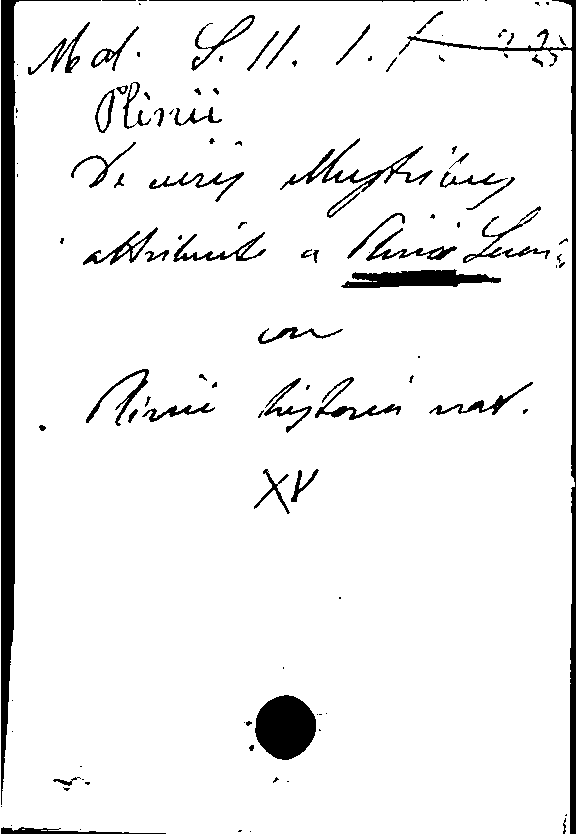 Mal. S. II. 1. f.
Plinii
De viris illustribus
attribuite a Plinio
con
Plinii historia nat.
XV